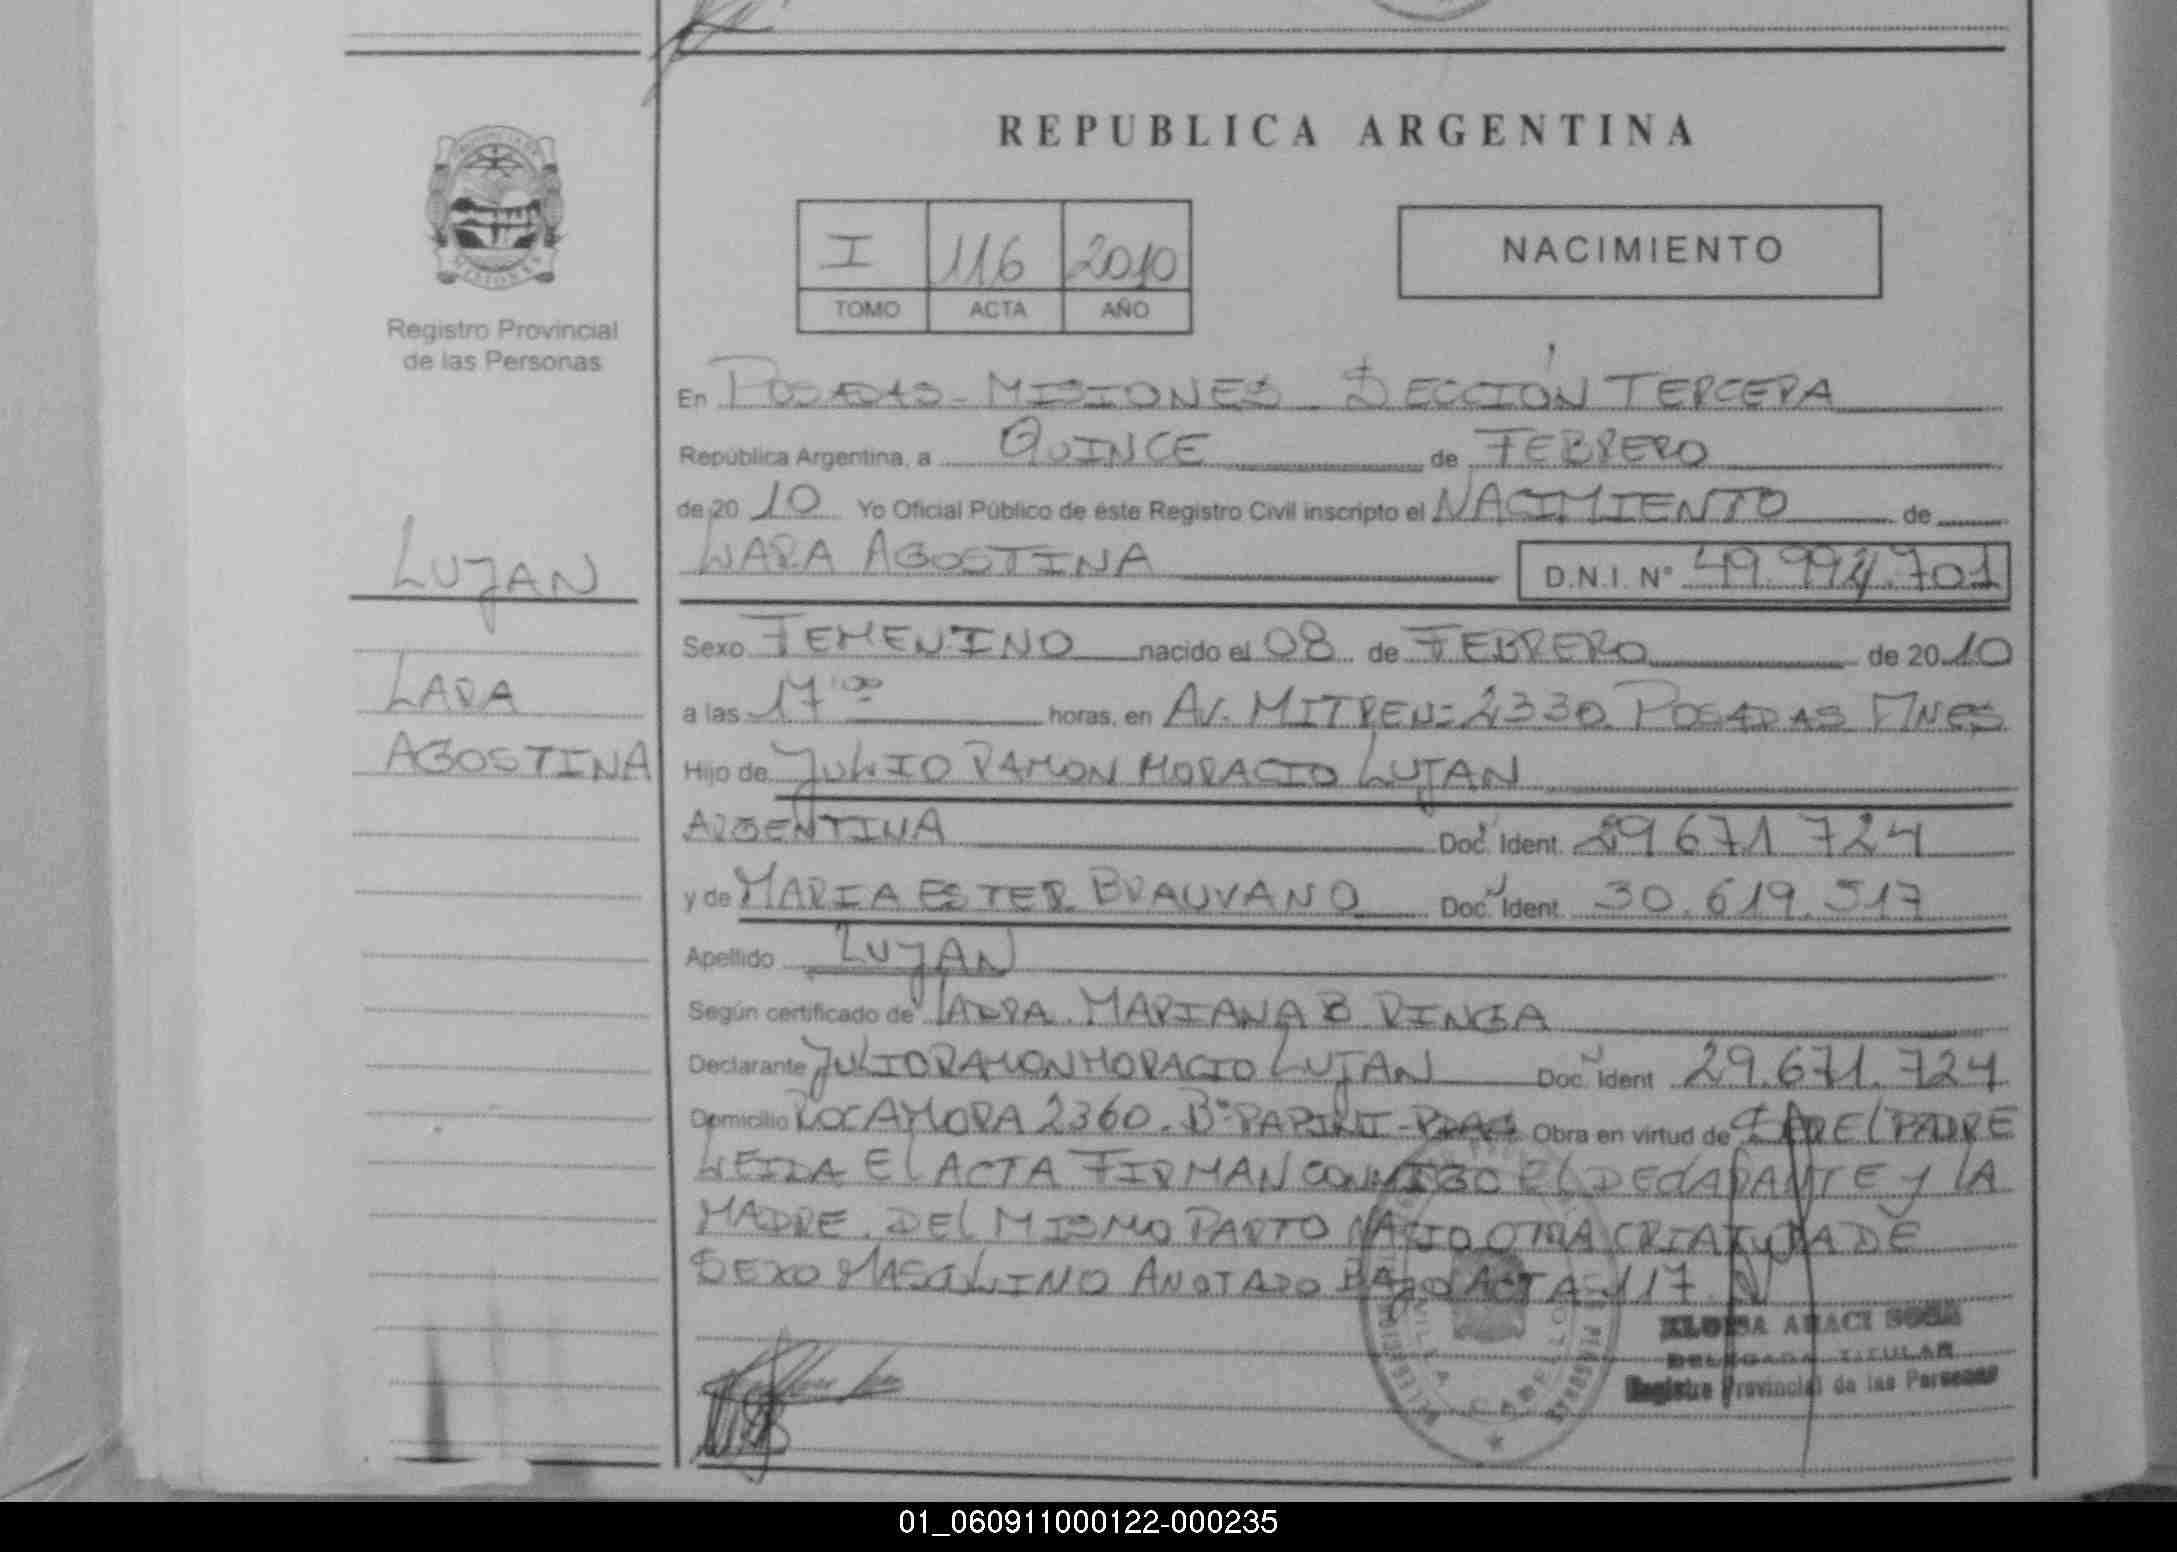 REPUBLICA ARGENTINA
I 116 2010
TOMO ACTA AÑO
NACIMIENTO
Registro Provincial
de las Personas
En POSADAS - MISIONES - SECCIÓN TERCERA
República Argentina, a QUINCE de FEBRERO
de 20 10 Yo Oficial Público de éste Registro Civil inscripto el NACIMIENTO de
LARA AGOSTINA D.N.I. Nº 49.994.701
LUJAN
LARA
AGOSTINA
Sexo FEMENINO nacido el 08 de FEBRERO de 20 10
a las 17:00 horas, en AV. MITRE Nº 2330 POSADAS MNES
Hijo de JULIO RAMON HORACIO LUJAN
ARGENTINA Doc. Ident. 29.671.724
y de MARIA ESTER Doc. Ident. 30.619.517
Apellido LUJAN
Según certificado de LA DRA. MARIANA B RINGA
Declarante JULIO RAMON HORACIO LUJAN Doc. Ident 29.671.724
Domicilio ROCAMORA 2360 - Bº PAPINI - Obra en virtud de SER EL PADRE
LEIDA EL ACTA FIRMAN CONMIGO EL DECLARANTE Y LA
MADRE. DEL MISMO PARTO NACIO OTRA CRIATURA DE
SEXO MASCULINO ANOTADO BAJO ACTA 117
ELOISA ARACI SOSA
DELEGADA TITULAR
Registro Provincial de las Personas
01_060911000122-000235